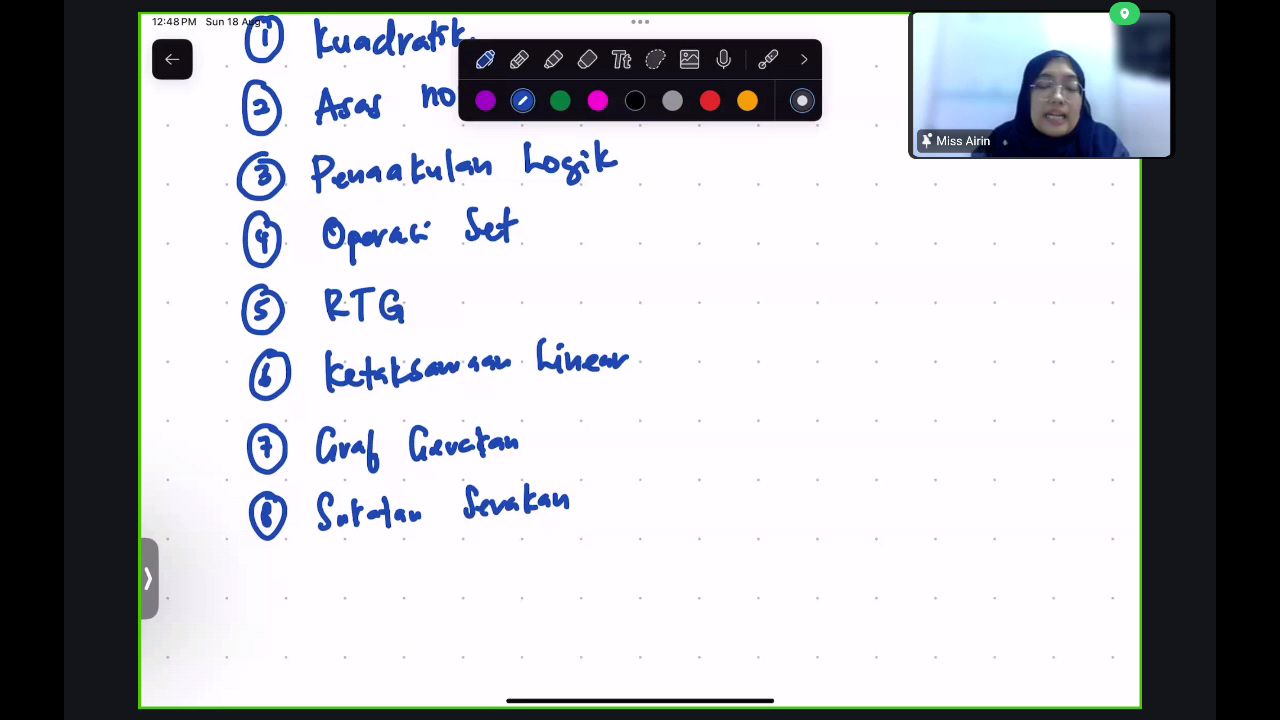 12:48 PM Sun 18 Aug
1 Kuadratik
2 Asas no
3 Penaakulan Logik
4 Operasi Set
5 RTG
6 Ketaksamaan Linear
7 Graf Gerakan
8 Sukatan Serakan
Tt
Miss Airin